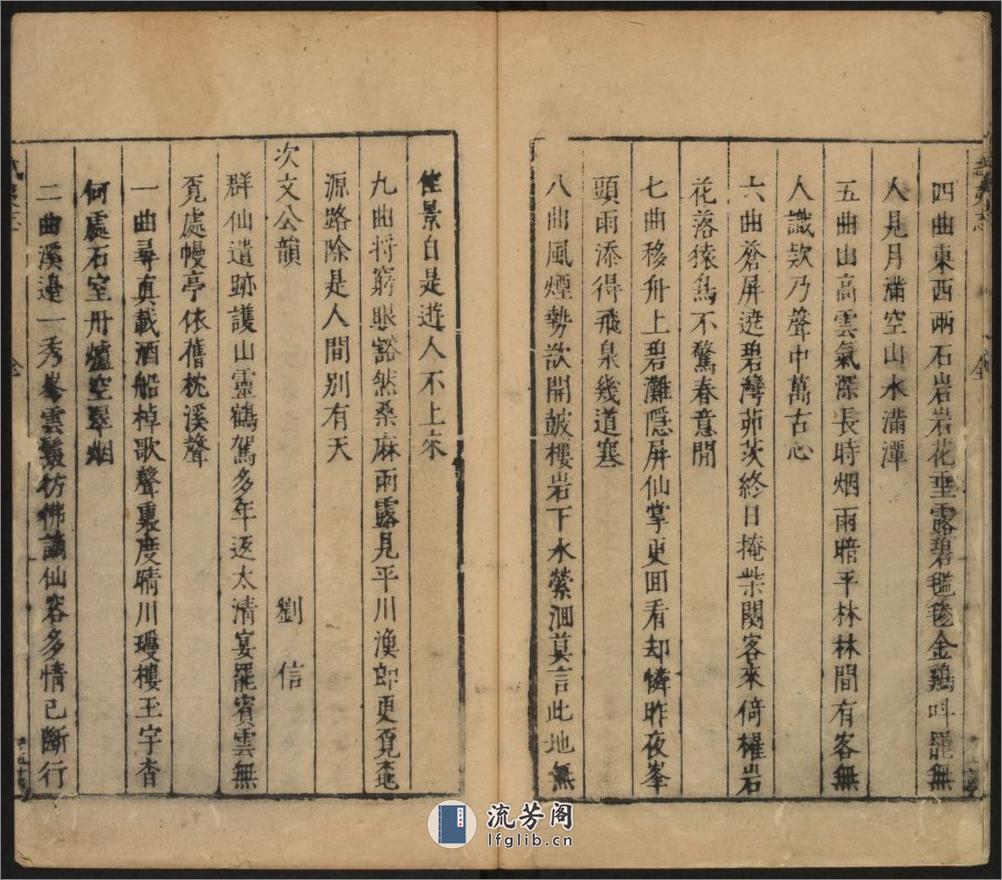 四曲東西兩石岩岩花垂露碧㲯毿金鷄呌罷無
人見月滿空山水滿潭
五曲山高雲氣深長時烟雨暗平林林間有客無
人識欸乃聲中萬古心
六曲蒼屏遶碧灣茆茨終日掩柴関客來倚櫂岩
花落猿鳥不驚春意閒
七曲移舟上碧灘隱屏仙掌更囬看却憐昨夜峯
頭雨添得飛泉幾道寒
八曲風煙勢欲開皷樓岩下水縈洄莫言此地無
佳景自是遊人不上來
九曲將窮眼豁然桑麻雨露見平川漁郎更覔桃
源路除是人間別有天
次文公韻 劉信
群仙遺跡護山靈鶴駕多年返太清宴罷賓雲無
覔處幔亭依舊枕溪聲
一曲尋真載酒船棹歌聲裏度晴川瓊樓玉宇杳
何處石室丹爐空翠烟
二曲溪邉一秀峯雲鬟彷彿謫仙容多情已斷行
流芳阁
lfglib.cn